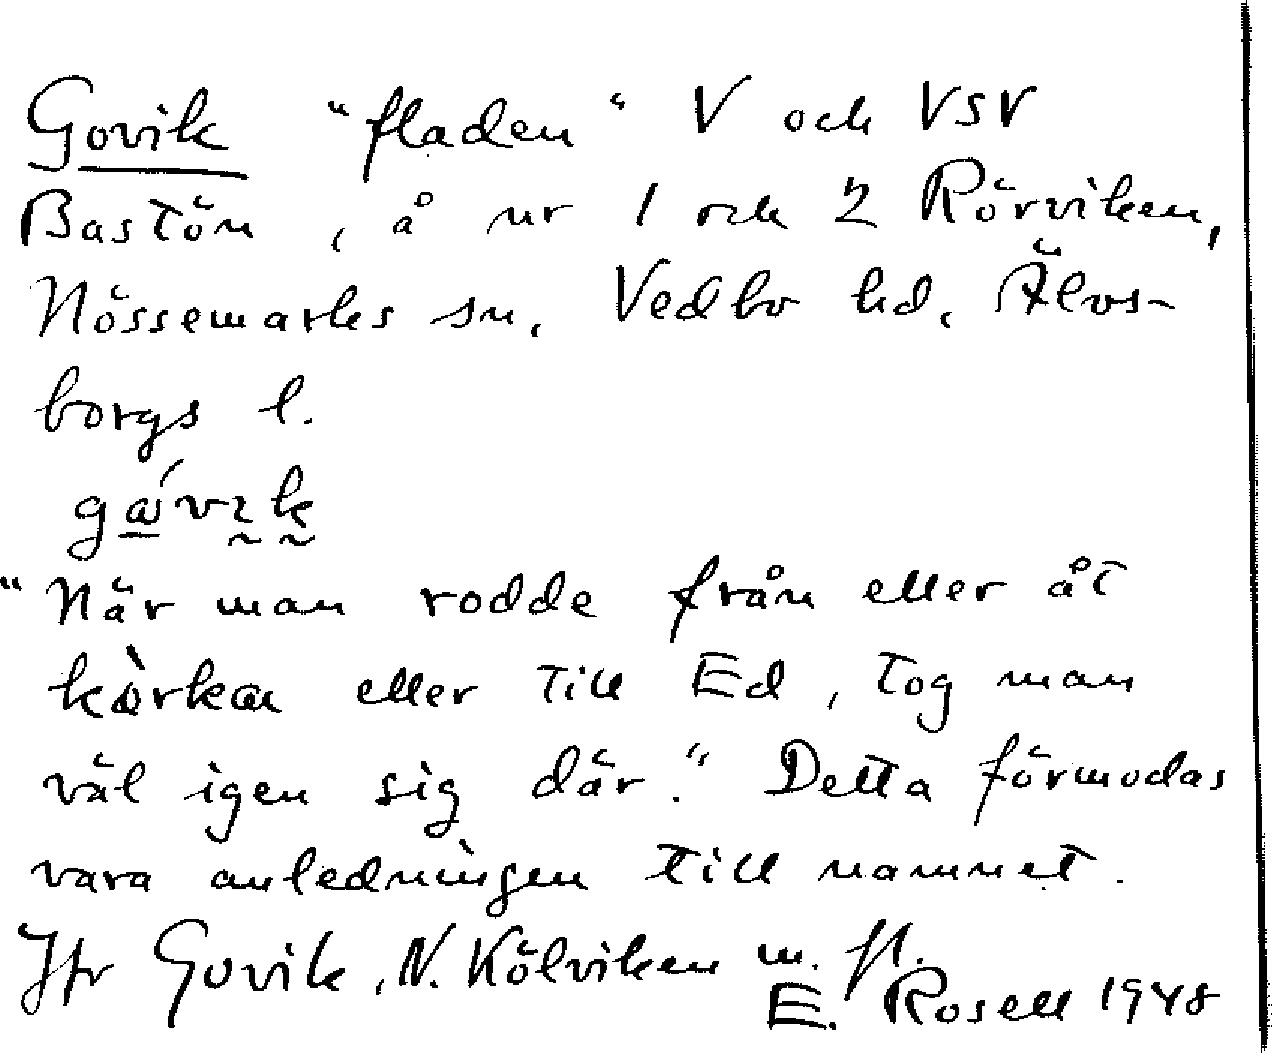 Govik "fladen" V och VSV
Bastön, å nr 1 och 2 Rörviken,
Nössemarks sn, Vedbo hd, Älvs-
borgs l.
"När man rodde från eller åt
eller till Ed, tog man
väl igen sig där." Detta förmodas
vara anledningen till namnet.
Jfr Govik, N. Kölviken m. fl.
E. Rosell 1948